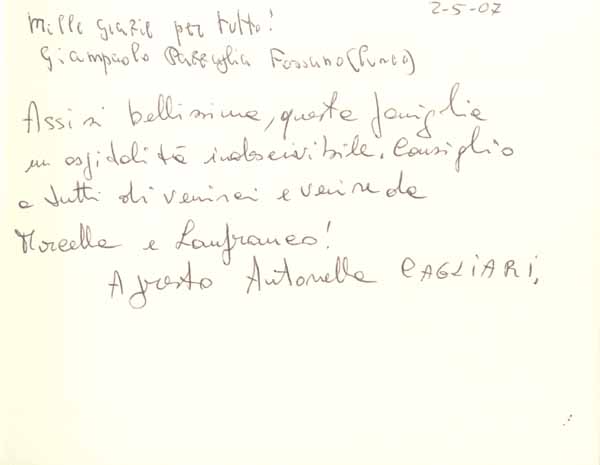 2-5-07
Mille grazie per tutto!
Giampaolo Fossano (Cuneo)
Assisi bellissima, questa famiglia
un ospitalità indescivibile. Consiglio
a tutti di venirci e venire da
Marcella e Lanfranco!
Agresto Antonella CAGLIARI.